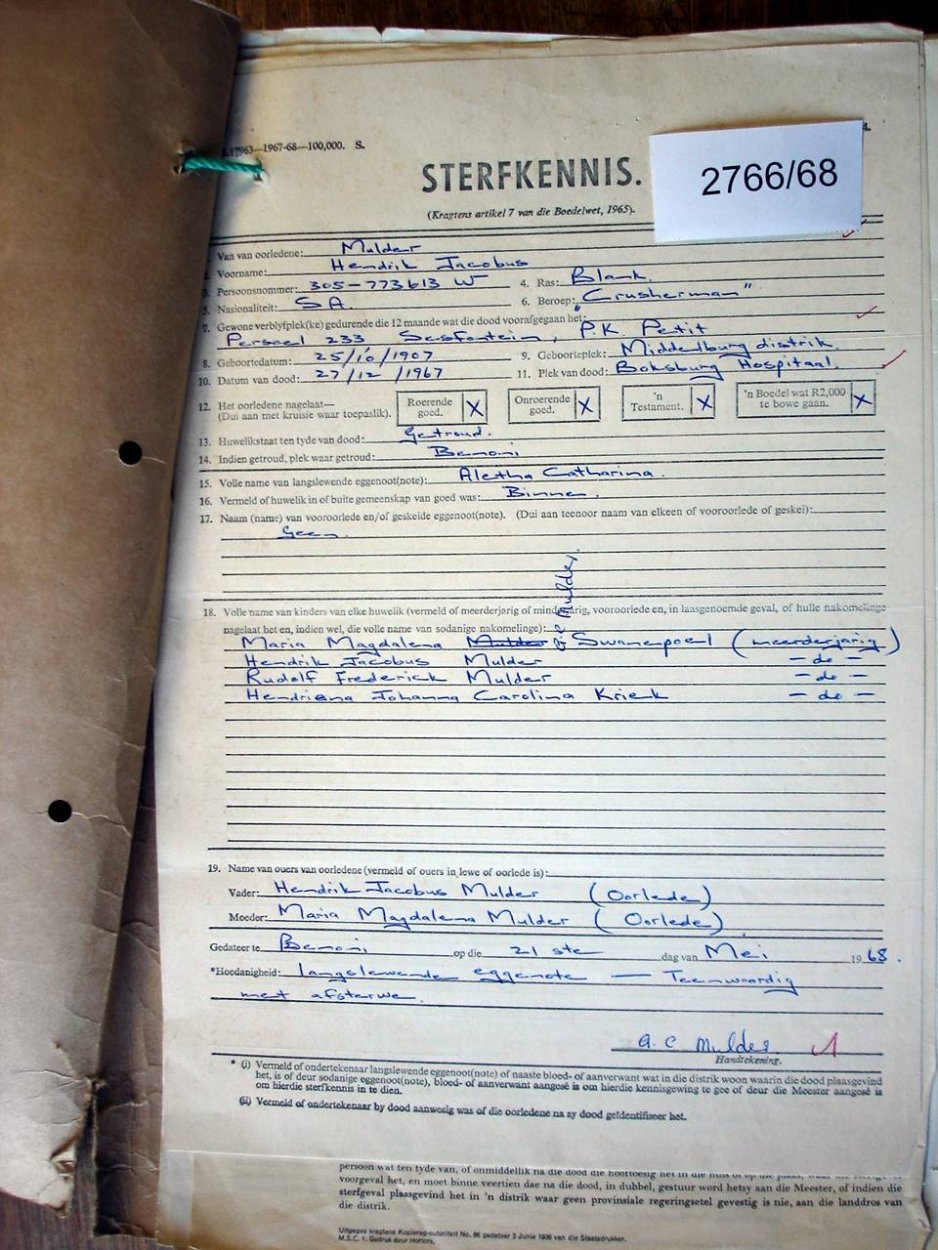 J.17963—1967-68—100,000. S.
2766/68
STERFKENNIS.
(Kragtens artikel 7 van die Boedelwet, 1965).
Van van oorledene: Mulder
Voorname: Hendrik Jacobus
3. Persoonsnommer: 305-773613 W 4. Ras: Blank.
5. Nasionaliteit: S A. 6. Beroep: "Crusherman"
7. Gewone verblyfplek(ke) gedurende die 12 maande wat die dood voorafgegaan het:
Perseel 233 Sesfontein, P.K. Petit
8. Geboortedatum: 25/10/1907 9. Geboorteplek: Middelburg distrik.
10. Datum van dood: 27/12/1967 11. Plek van dood: Boksburg Hospitaal.
12. Het oorledene nagelaat— Roerende goed. X Onroerende goed. X 'n Testament. X 'n Boedel wat R2,000 te bowe gaan. X
(Dui aan met kruisie waar toepaslik).
13. Huwelikstaat ten tyde van dood: Getroud.
14. Indien getroud, plek waar getroud: Benoni
15. Volle name van langslewende eggenoot(note): Aletha Catharina.
16. Vermeld of huwelik in of buite gemeenskap van goed was: Binne.
17. Naam (name) van vooroorlede en/of geskeide eggenoot(note). (Dui aan teenoor naam van elkeen of vooroorlede of geskei):
Geen.
18. Volle name van kinders van elke huwelik (vermeld of meerderjarig of minderjarig, vooroorlede en, in laasgenoemde geval, of hulle nakomelinge
nagelaat het en, indien wel, die volle name van sodanige nakomelinge):
Mulder.
Maria Magdalena Mulder Swanepoel (meerderjarig)
Hendrik Jacobus Mulder — do —
Rudolf Frederick Mulder — do —
Hendriena Johanna Carolina Kriek — do —
19. Name van ouers van oorledene (vermeld of ouers in lewe of oorlede is):
Vader: Hendrik Jacobus Mulder (Oorlede)
Moeder: Maria Magdalena Mulder (Oorlede)
Gedateer te Benoni op die 21 ste dag van Mei 1968.
*Hoedanigheid: langslewende eggenote — Teenwoordig
met afsterwe.
A. C Mulder
Handtekening.
* (i) Vermeld of ondertekenaar langslewende eggenoot(note) of naaste bloed- of aanverwant wat in die distrik woon waarin die dood plaasgevind
het, is of deur sodanige eggenoot(note), bloed- of aanverwant aangesê is om hierdie kennisgewing te gee of deur die Meester aangesê is
om hierdie sterfkennis in te dien.
(ii) Vermeld of ondertekenaar by dood aanwesig was of die oorledene na sy dood geïdentifiseer het.
persoon wat ten tyde van, of onmiddellik na die dood die hooftoesig het in die huis of op die plaas,
voorgeval het, en moet binne veertien dae na die dood, in dubbel, gestuur word hetsy aan die Meester, of indien die
sterfgeval plaasgevind het in 'n distrik waar geen provinsiale regeringsetel gevestig is nie, aan die landdros van
die distrik.
Uitgegee kragtens Kopiereg-outoriteit No. 86 gedateer 3 Junie 1936 van die Staatsdrukker.
M.S.C. 1. Gedruk deur Hortors.